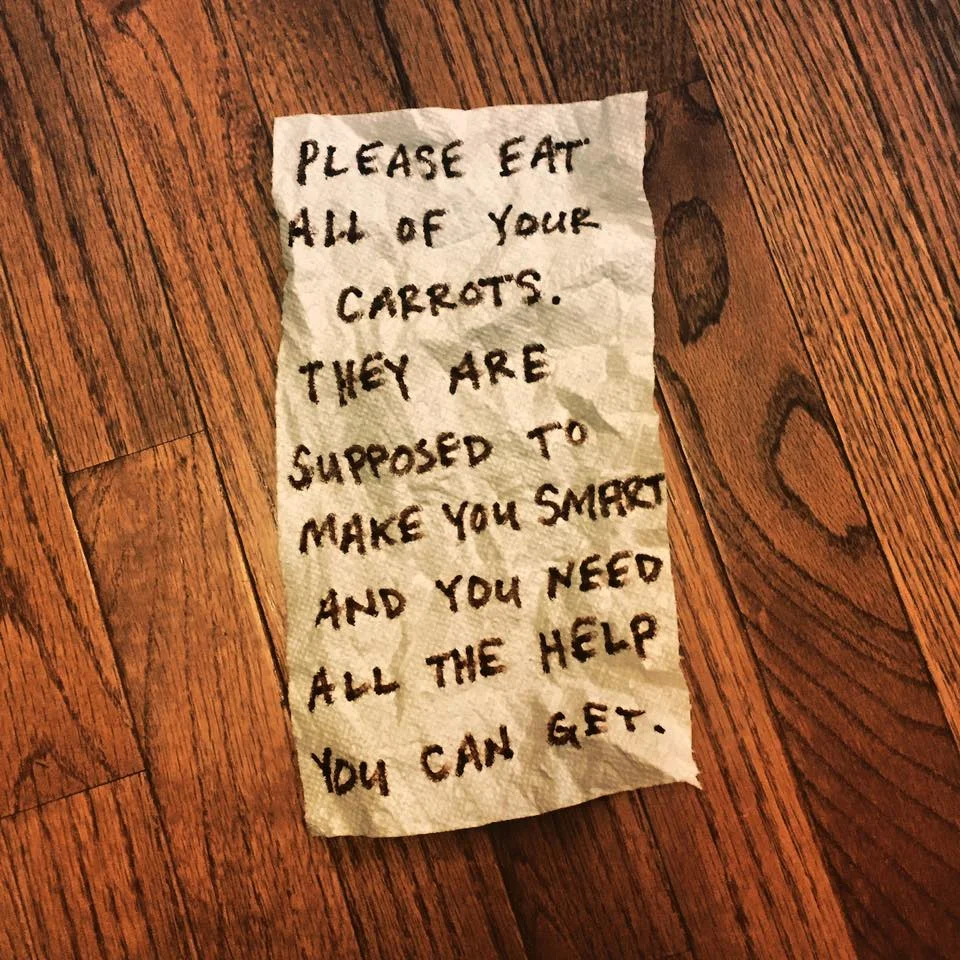 PLEASE EAT
ALL OF YOUR
CARROTS.
THEY ARE
SUPPOSED TO
MAKE YOU SMART
AND YOU NEED
ALL THE HELP
YOU CAN GET.